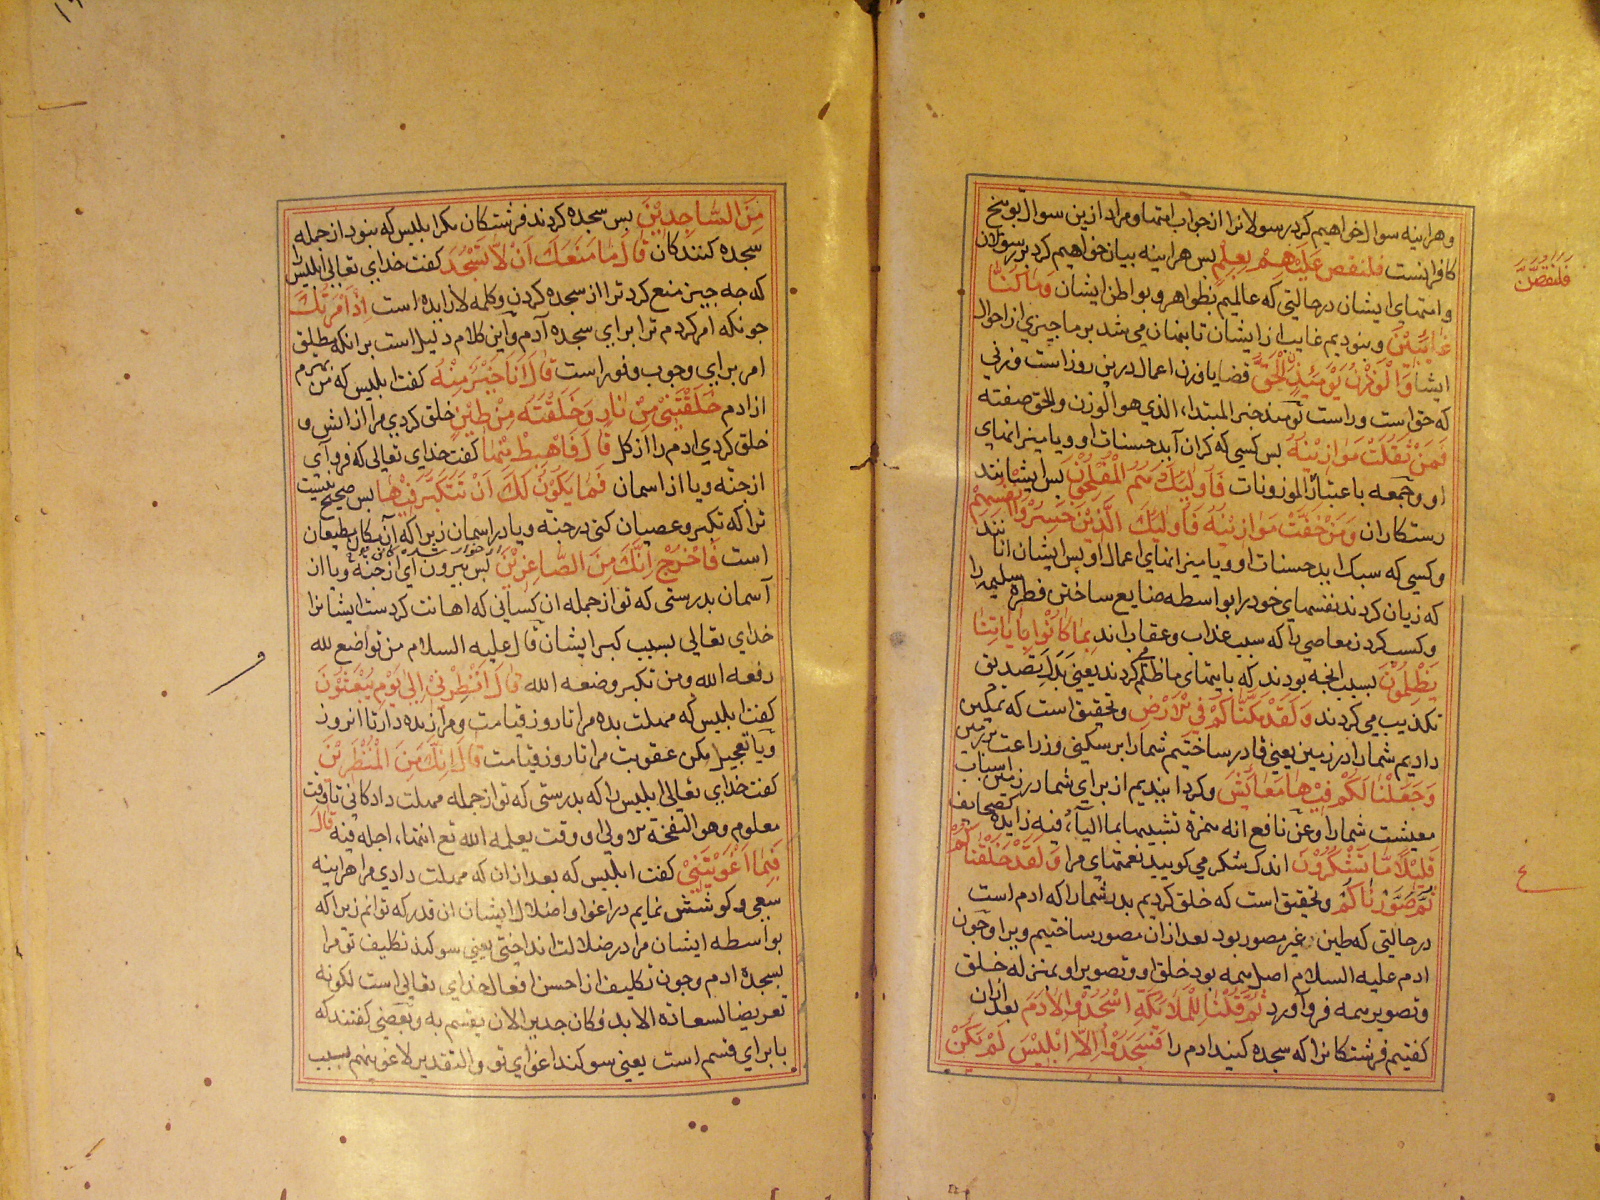 وهراینه سوال خواهیم کرد رسولانرا از جواب امتها و مراد ازین سوال توبیخ
کافرانست فلنقصن علیهم بعلم بس هراینه بیان خواهیم کرد بر رسولان
وامتهای ایشان در حالیتی که عالمیم بظواهر و بواطن ایشان وما کنا
غائبین ونبودیم غایب از ایشان تا بنهان می شد بر ما چیزی از احوال
ایشان والوزن یومئذ الحق قضایا وزن اعمال درین روز است وزنی
که حق است وراست یومئذ خبر المبتدا، الذي هو الوزن والحق صفته
فمن ثقلت موازینه بس کسی که کران آید حسنات او ویا میزانهای
او وجمعه باعتبار الموزونات فاولئک هم المفلحون بس ایشانند
رستکاران ومن خفت موازینه فاولئک الذین خسروا انفسهم
وکسی که سبک اید حسنات او ویا میزانهای اعمال او بس ایشان انانند
که زیان کردند نفسهای خود را بواسطه ضایع ساختن فطره سلیمه را
وکسب کردن معاصی را که سبب عذاب وعقاب اند بما کانوا بایاتنا
یظلمون بسبب انچه بودند که بایتهای ما ظلم کردند یعنی بدل تصدیق
تکذیب می کردند ولقد مکناکم فی الارض وتحقیق است که تمکین
دادیم شما را در زمین یعنی قادر ساختیم شما را بر سکینی وزراعت بر زمین
وجعلنا لکم فیها معائش وکردانیدیم از برای شما در زمین اسباب
معیشت شما را وعن نافع انه همزه تشبیها بما الیاء فیه زایده کصحائف
قلیلا ما تشکرون اندک شکر می کویید نعمتهای مرا ولقد خلقناکم
ثم صورناکم وتحقیق است که خلق کردیم بدر شما را که ادم است
در حالتی که طین غیر مصور بود بعد ازان مصور ساختیم ویرا وچون
ادم علیه السلام اصل همه بود خلق او وتصویر او بمنزله خلق
وتصویر همه فرو آورد ثم قلنا للملائکة اسجدوا لادم بعد ازان
کفتیم فرشتکانرا که سجده کنید ادم را فسجدوا الا ابلیس لم یکن
فلنقصن
ع
من الساجدین بس سجده کردند فرشتکان مکر ابلیس که نبود از جمله
سجده کنندکان قال ما منعک ان لا تسجد کفت خدای تعالی ابلیس را
که چه چیز منع کرد ترا از سجده کردن وکلمه لا زایده است اذ امرتک
جونکه امر کردم ترا برای سجده آدم واین کلام دلیل است برانکه مطلق
امر برای وجوب وفور است قال انا خیر منه کفت ابلیس که من بهترم
از ادم خلقتنی من نار وخلقته من طین خلق کردی مرا از اتش و
خلق کردی ادم را از کل قال فاهبط منها کفت خدای تعالی که فرو آی
از جنه ویا از اسمان فما یکون لک ان تتکبر فیها بس صحیح نیست
ترا که تکبر وعصیان کنی در جنه ویا در اسمان زیرا که آن مکان مطیعان
است فاخرج انک من الصاغرین بس بیرون آی از جنه ویا از
آسمان بدرستی که تو از جمله ان کسانی که اهانت کردست ایشانرا
خدای تعالی بسبب کبر ایشان قال علیه السلام من تواضع لله
رفعه الله ومن تکبر وضعه الله قال انظرنی الی یوم یبعثون
کفت ابلیس که مهلت بده مرا تا روز قیامت ومرا زنده دار تا انروز
ویا تعجیل مکن عقوبت مرا تا روز قیامت قال انک من المنظرین
کفت خدای تعالی ابلیس را که بدرستی که تو از جمله مهلت دادکانی تا وقت
معلوم وهو النفخة الاولی او وقت یعلمه الله تع انتها، اجله فیه قال
فبما اغویتنی کفت ابلیس که بعد ازان که مهلت دادی مرا هراینه
سعی وکوشش نمایم در اغوا واضلال ایشان ان قدر که توانم زیرا که
بواسطه ایشان مرا در ضلالت انداختی یعنی سوکند تکلیف تو مرا
بسجده ادم وجون تکلیف از احسن افعال خدای تعالی است لکونه
تعریضا لسعادة الابد فکان جدیرا لان یقسم به وبعضی کفتند که
با برای قسم است یعنی سوکند اغوای تو والتقدیر لاغوینهم بسبب